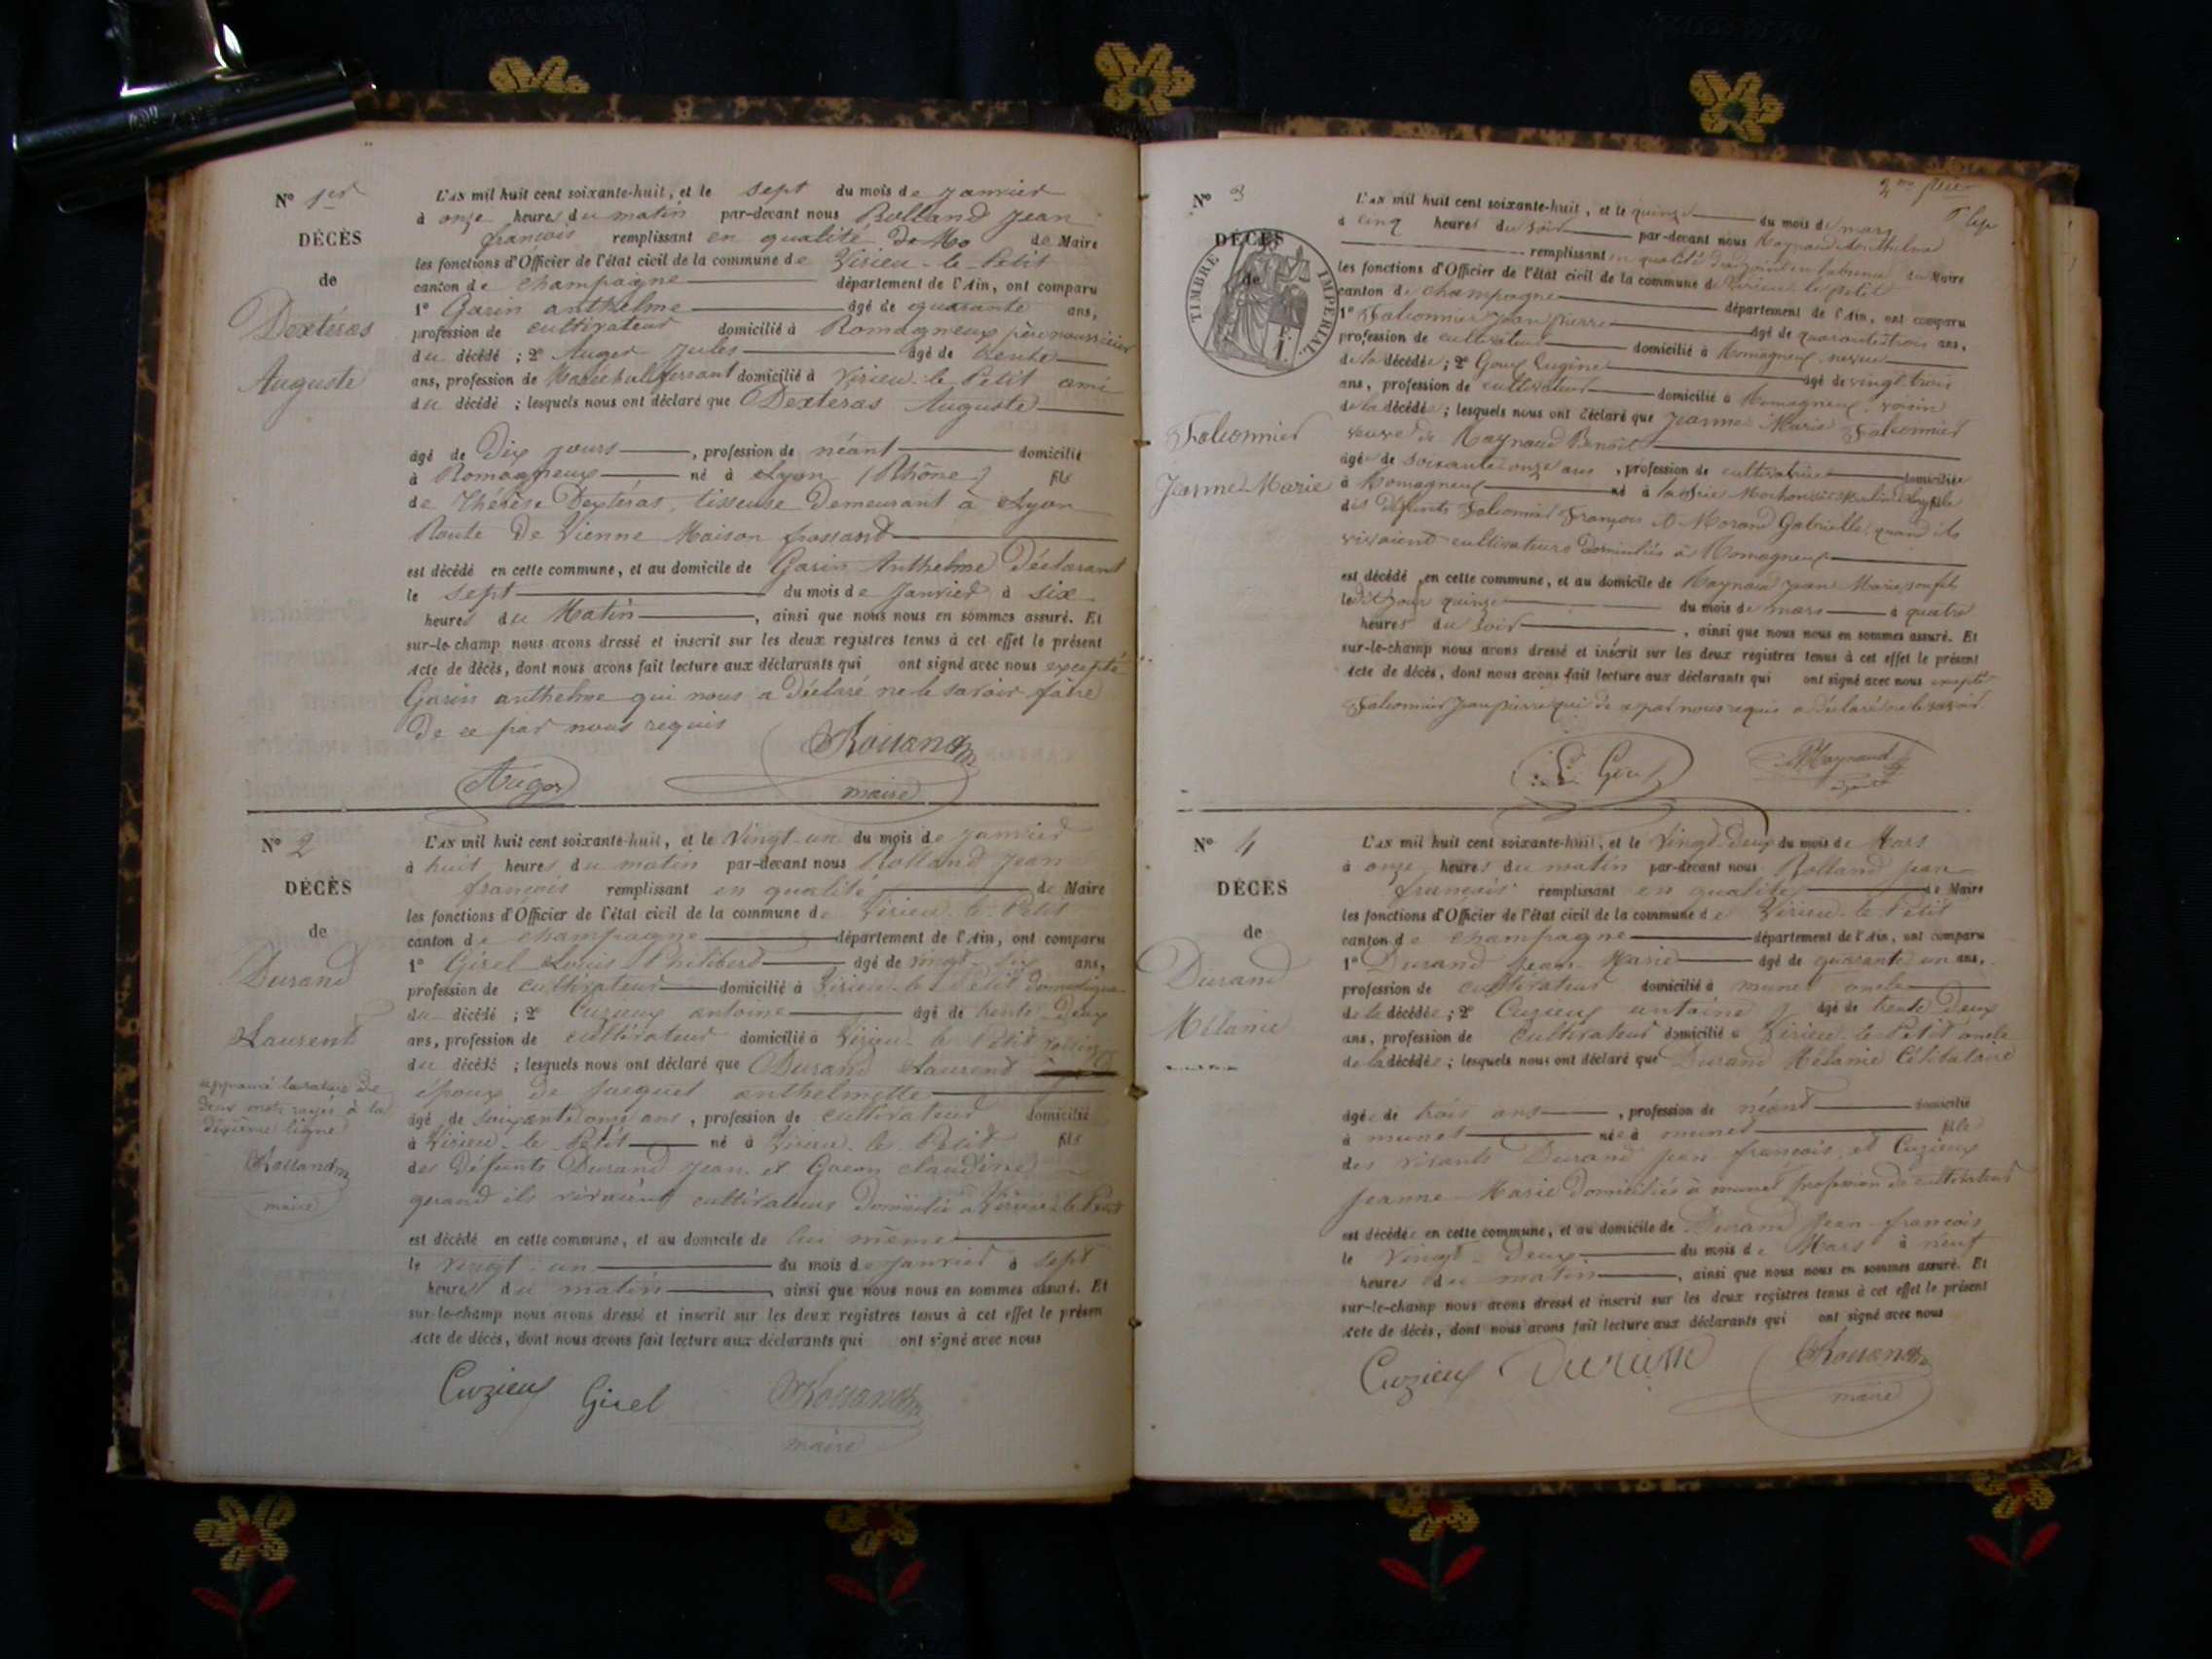 Nº 1er
DÉCÈS
de
Dextéras
Auguste
L'AN mil huit cent soixante-huit, et le sept du mois de janvier
à onze heures du matin par-devant nous Rolland Jean
françois remplissant en qualité de Mo de Maire
les fonctions d'Officier de l'état civil de la commune de Virieu-le-Petit
canton de Champagne département de l'Ain, ont comparu
1º Garin anthelme âgé de quarante ans,
profession de cultivateur domicilié à Romagneux père nourricier
du décédé ; 2º Auger Jules âgé de trente
ans, profession de Maréchal ferrant domicilié à Virieu-le-Petit ami
du décédé ; lesquels nous ont déclaré que Dexteras Auguste
âgé de Dix jours, profession de néant domicilié
à Romagneux né à Lyon (Rhône) fils
de Thérèse Dextéras, tisseuse Demeurant à Lyon
Route De Vienne Maison frossard
est décédé en cette commune, et au domicile de Garin Anthelme Déclarant
le sept du mois de Janvier à six
heures du Matin, ainsi que nous nous en sommes assuré. Et
sur-le-champ nous avons dressé et inscrit sur les deux registres tenus à cet effet le présent
Acte de décès, dont nous avons fait lecture aux déclarants qui ont signé avec nous excepté
Garin anthelme qui nous a Déclaré ne le savoir faire
De ce par nous requis
Rolland
Auger
maire
Nº 2
DÉCÈS
de
Durand
Laurent
approuvé la rature de
deux mots rayés à la
dixième ligne
Rolland
maire
L'AN mil huit cent soixante-huit, et le Vingt-un du mois de janvier
à huit heures du matin par-devant nous Rolland Jean
françois remplissant en qualité de Maire
les fonctions d'Officier de l'état civil de la commune de Virieu-le-Petit
canton de champagne département de l'Ain, ont comparu
1º Girel Louis Philibert âgé de vingt-six ans,
profession de cultivateur domicilié à Virieu-le-Petit
du décédé ; 2º Cuzieux antoine âgé de trente Deux
ans, profession de cultivateur domicilié à Virieu-le-Petit voisin
du décédé ; lesquels nous ont déclaré que Durand Laurent
époux de jacquet anthelmette
âgé de soixante onze ans, profession de cultivateur domicilié
à Virieu-le-Petit né à Virieu-le-Petit fils
des Défunts Durand Jean et claudine
quand ils vivaient cultivateurs Domicilié à Virieu-le-Petit
est décédé en cette commune, et au domicile de lui même
le vingt-un du mois de janvier à sept
heures du matin, ainsi que nous nous en sommes assuré. Et
sur-le-champ nous avons dressé et inscrit sur les deux registres tenus à cet effet le présen
Acte de décès, dont nous avons fait lecture aux déclarants qui ont signé avec nous
Cuzieux Girel Rolland
maire
2me
Nº 3
DÉCÈS
de
TIMBRE IMPÉRIAL
Falconnier
Jeanne-Marie
L'AN mil huit cent soixante-huit, et le quinze du mois de mars
à cinq heures du soir par-devant nous Raynaud Anthelme
remplissant en qualité d'adjoint en l'absence du Maire
les fonctions d'Officier de l'état civil de la commune de Virieu-le-petit
canton de champagne département de l'Ain, ont comparu
1º Falconnier Jean pierre âgé de quarante trois ans,
profession de cultivateur domicilié à Romagneux neveu
de la décédée ; 2º Goux Eugène âgé de vingt trois
ans, profession de cultivateur domicilié à Romagneux voisin
de la décédée ; lesquels nous ont déclaré que Jeanne Marie Falconnier
veuve de Raynaud Benoit
âgée de soixante onze ans, profession de cultivatrice domiciliée
à Romagneux né à fille
des défunts Falconnier François et Morand Gabrielle quand ils
vivaient cultivateurs domiciliés à Romagneux
est décédé en cette commune, et au domicile de Raynaud Jean Marie son fils
ledit jour quinze du mois de mars à quatre
heures du soir, ainsi que nous nous en sommes assuré. Et
sur-le-champ nous avons dressé et inscrit sur les deux registres tenus à cet effet le présent
Acte de décès, dont nous avons fait lecture aux déclarants qui ont signé avec nous excepté
Falconnier Jean pierre qui de ce par nous requis a déclaré ne le savoir
E. Goux Raynaud
Nº 4
DÉCÈS
de
Durand
Mélanie
L'AN mil huit cent soixante-huit, et le Vingt-Deux du mois de Mars
à onze heures du matin par-devant nous Rolland jean
françois remplissant en qualité de Maire
les fonctions d'Officier de l'état civil de la commune de Virieu-le-Petit
canton de champagne département de l'Ain, ont comparu
1º Durand Jean Marie âgé de quarante un ans,
profession de cultivateur domicilié à munet oncle
de la décédée ; 2º Cuzieux antoine âgé de trente Deux
ans, profession de Cultivateur domicilié à Virieu-le-Petit oncle
de la décédée ; lesquels nous ont déclaré que Durand Mélanie Célibataire
âgée de trois ans, profession de néant domicilié
à munet née à munet fille
des vivants Durand jean françois et Cuzieux
Jeanne-Marie domiciliés à munet profession de cultivateur
est décédée en cette commune, et au domicile de Durand Jean françois
le Vingt-Deux du mois de Mars à neuf
heures du matin, ainsi que nous nous en sommes assuré. Et
sur-le-champ nous avons dressé et inscrit sur les deux registres tenus à cet effet le présent
Acte de décès, dont nous avons fait lecture aux déclarants qui ont signé avec nous
Cuzieux Durand Rolland
maire